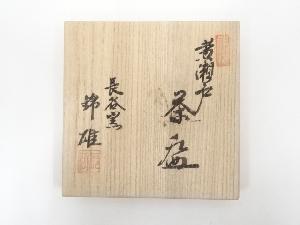 黄瀬戸
茶盌
長谷窯
錦雄